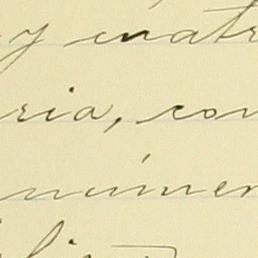 y cuatr
ria, con
númer